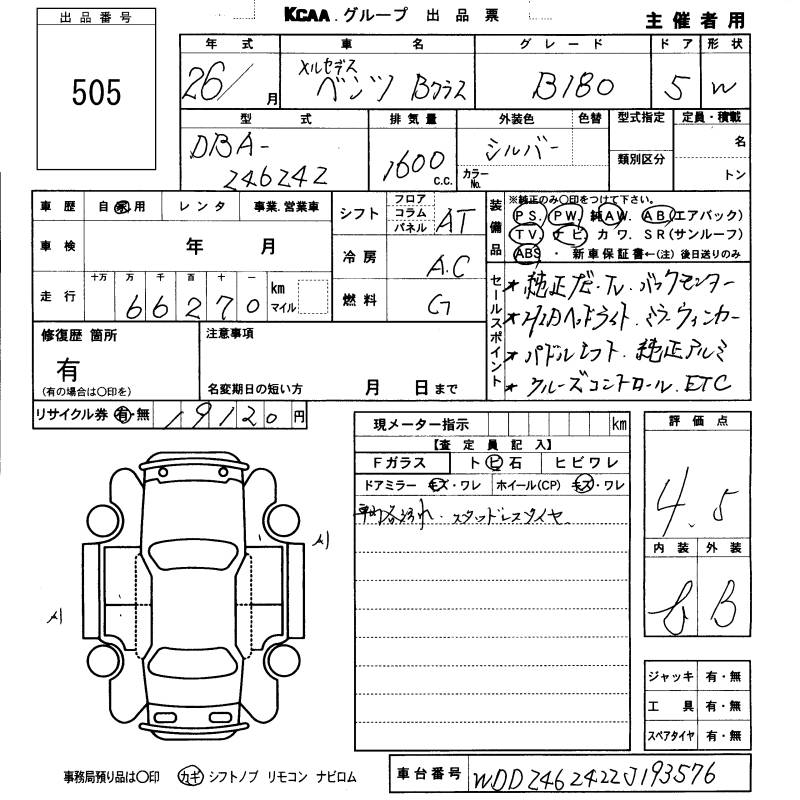 出品番号
505
KCAA.グループ 出品票
主催者用
年式 車名 グレード ドア 形状
26/ 月 メルセデス ベンツ Bクラス B180 5 W
型式 排気量 外装色 色替 型式指定 定員・積載
DBA-246242 1600 c.c. シルバー カラーNo. 類別区分 名 トン
車歴 自家用 レンタ 事業.営業車
車検 年 月
走行 十万 万 千 百 十 一 km マイル
66270
シフト フロア コラム パネル AT
冷房 A.C
燃料 G
装備品 ※純正のみ〇印をつけて下さい。
PS. PW. 純AW. AB.(エアバック)
TV. ナビ. カワ. SR(サンルーフ)
ABS ・ 新車保証書←(注) 後日送りのみ
セールスポイント
★純正ナビ.TV.バックモニター
★HIDヘッドライト.ミラーウィンカー
★パドルシフト.純正アルミ
★クルーズコントロール.ETC
修復歴 箇所
有
(有の場合は〇印を)
注意事項
名変期日の短い方 月 日まで
リサイクル券 有・無 19120 円
現メーター指示 km
【査定員記入】
Fガラス トビ石 ヒビワレ
ドアミラー キズ・ワレ ホイール(CP) キズ・ワレ
スタッドレスタイヤ
評価点
4.5
内装 外装
B
ジャッキ 有・無
工具 有・無
スペアタイヤ 有・無
事務局預り品は〇印 カギ シフトノブ リモコン ナビロム
車台番号 WDD2462422J193576